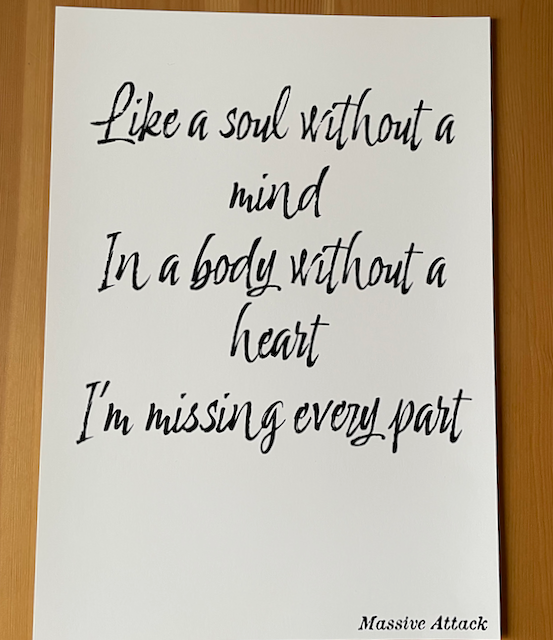 Like a soul without a
mind
In a body without a
heart
I'm missing every part
Massive Attack